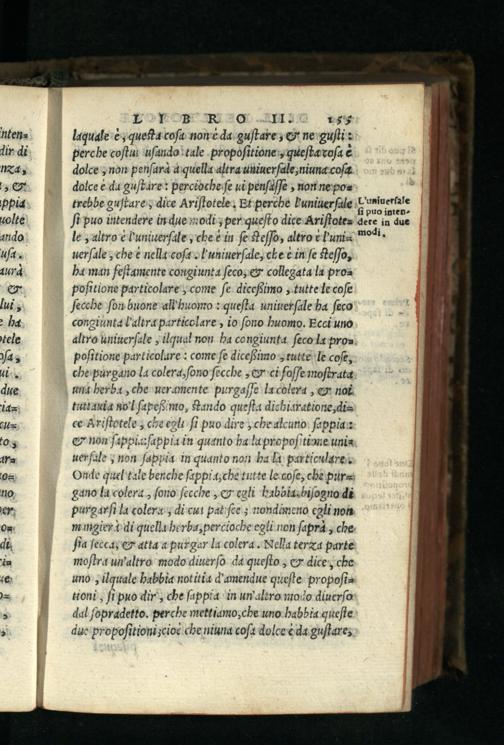 LIBRO II. 155
laquale è, questa cosa non è da gustare, & ne gusti:
perche costui usando tale propositione, questa cosa è
dolce, non pensarà a quella altra uniuersale, niuna cosa
dolce è da gustare: percioche se ui pensasse, non ne po=
trebbe gustare, dice Aristotele. Et perche l'uniuersale
si puo intendere in due modi, per questo dice Aristote=
le, altro è l'uniuersale, che è in se stesso, altro è l'uni=
uersale, che è nella cosa. l'uniuersale, che è in se stesso,
ha manifestamente congiunta seco, & collegata la pro=
positione particolare, come se dicessimo, tutte le cose
secche son buone all'huomo: questa uniuersale ha seco
congiunta l'altra particolare, io sono huomo. Ecci uno
altro uniuersale, ilqual non ha congiunta seco la pro=
positione particolare: come se dicessimo, tutte le cose,
che purgano la colera, sono secche, & ci fosse mostrata
una herba, che ueramente purgasse la colera, & noi
tuttauia no'l sapessimo, stando questa dichiaratione, di=
ce Aristotele, che egli si puo dire, che alcuno sappia:
& non sappia: sappia in quanto ha la propositione uni=
uersale, non sappia in quanto non ha la particulare.
Onde quel tale benche sappia, che tutte le cose, che pur=
gano la colera, sono secche, & egli habbia bisogno di
purgarsi la colera, di cui patisce; nondimeno egli non
mangierà di quella herba, percioche egli non saprà, che
sia secca, & atta a purgar la colera. Nella terza parte
mostra un'altro modo diuerso da questo, & dice, che
uno, ilquale habbia notitia d'amendue queste proposi=
tioni, si puo dir, che sappia in un'altro modo diuerso
dal sopradetto. perche mettiamo, che uno habbia queste
due propositioni; cioè che niuna cosa dolce è da gustare,
L'uniuersale
si puo inten-
dere in due
modi.